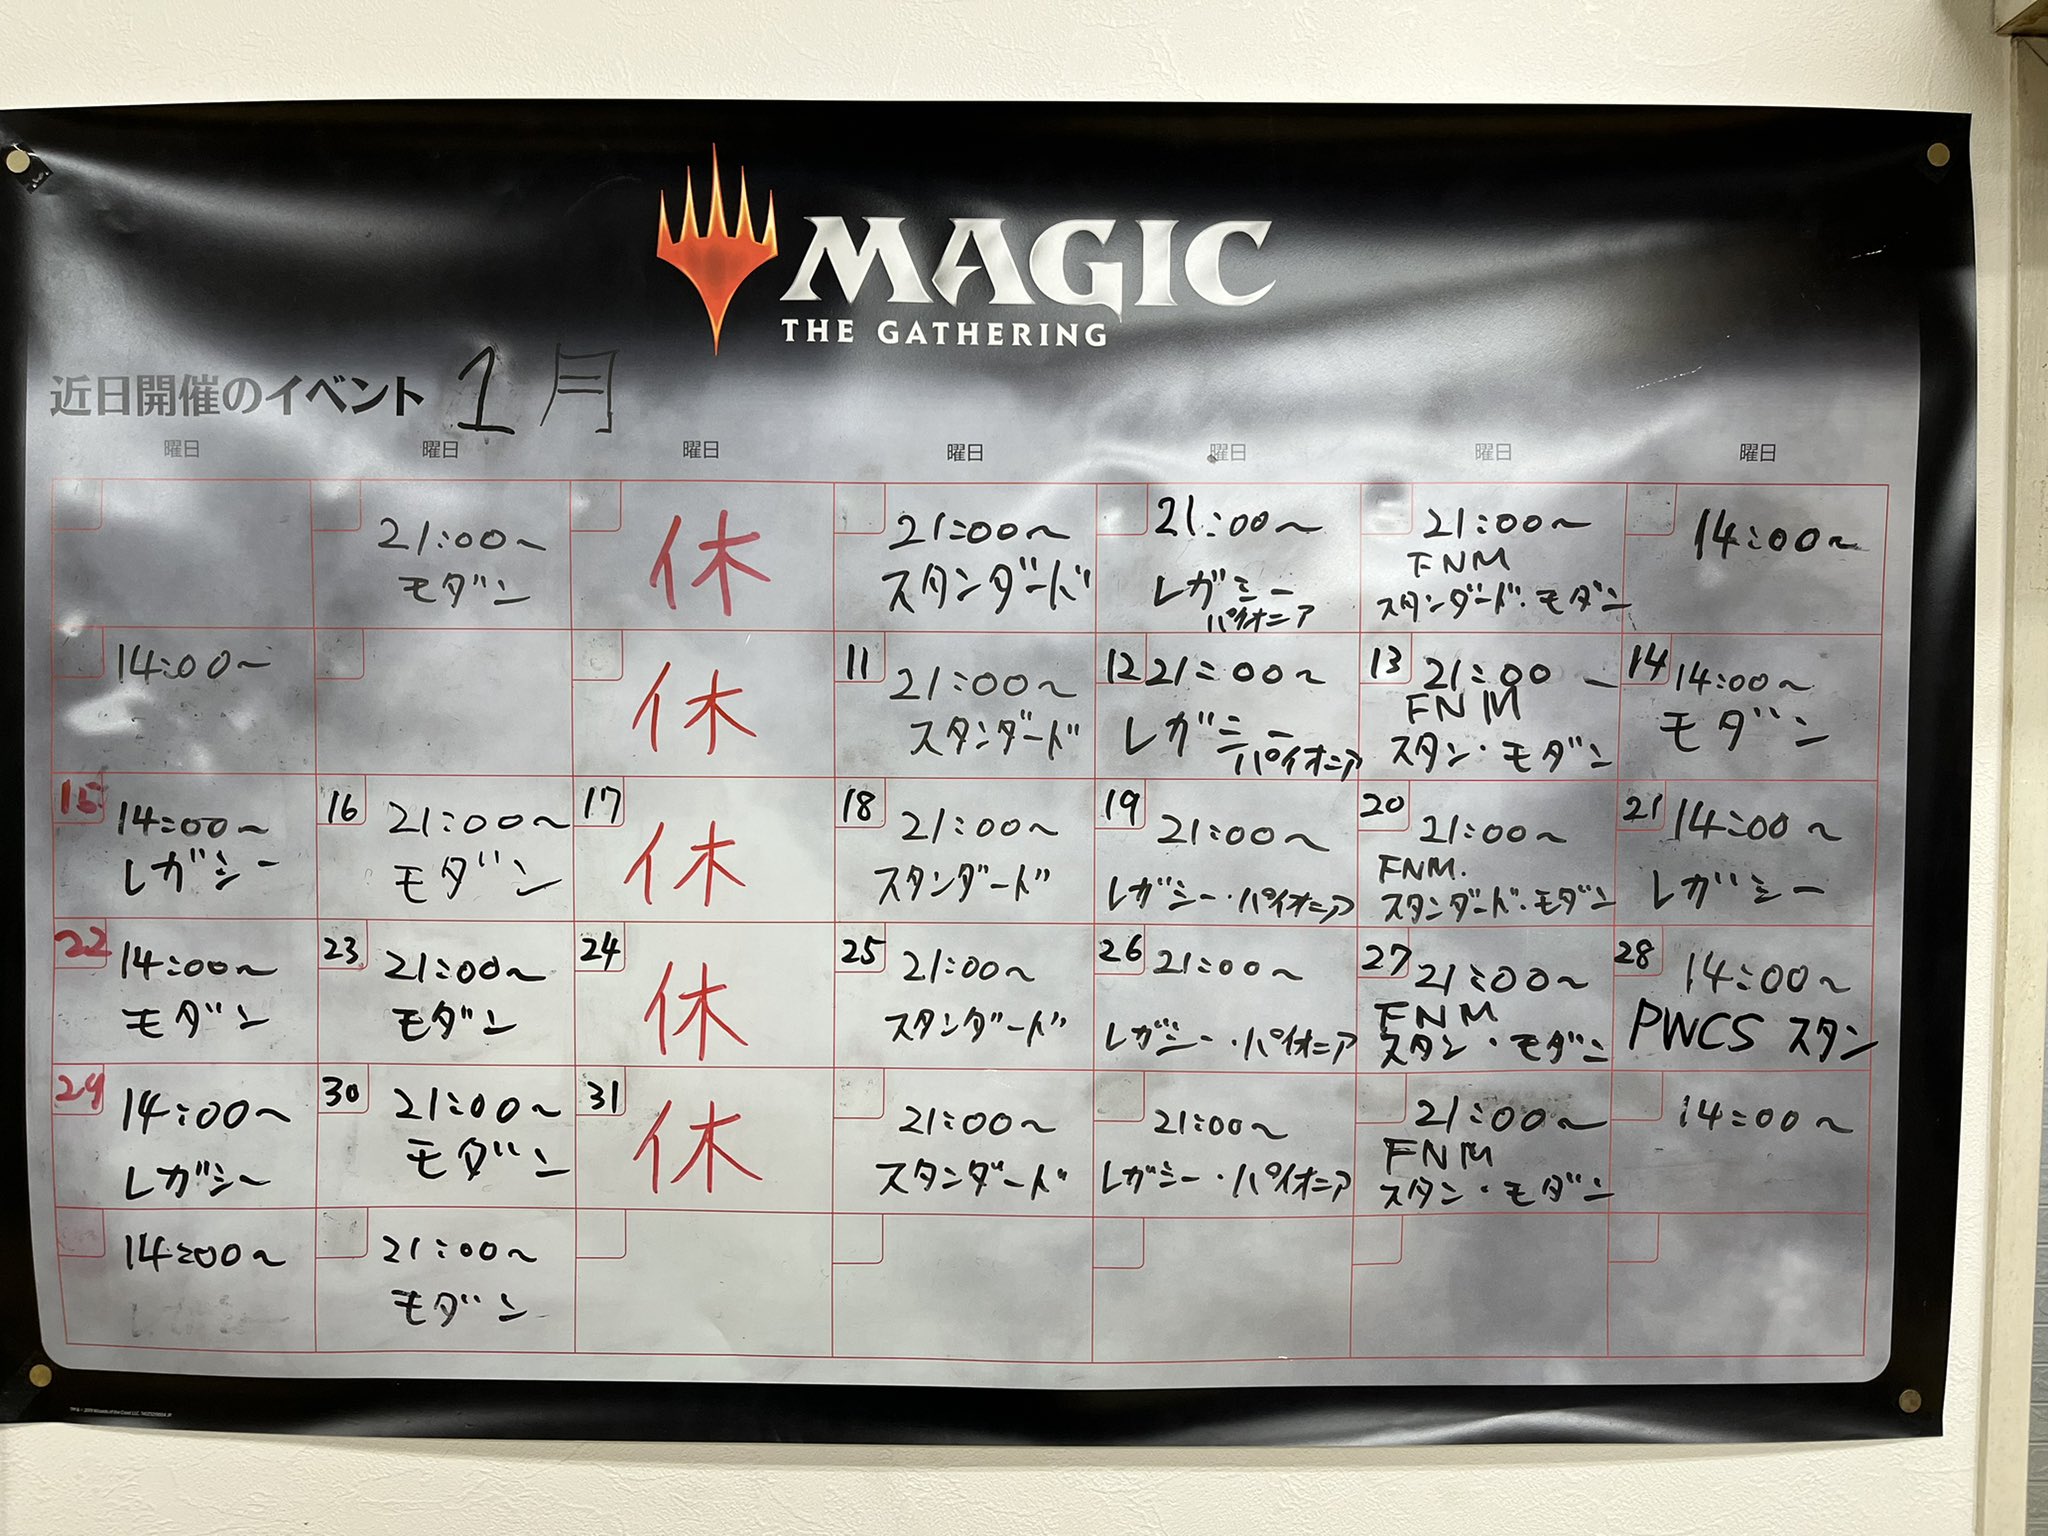 MAGIC
THE GATHERING
近日開催のイベント 1月
曜日 曜日 曜日 曜日 曜日 曜日 曜日
21:00~
モダン
休
21:00~
スタンダード
21:00~
レガシー
パイオニア
21:00~
FNM
スタンダード・モダン
14:00~
14:00~
休
11 21:00~
スタンダード
12 21:00~
レガシー
パイオニア
13 21:00~
FNM
スタン・モダン
14 14:00~
モダン
15 14:00~
レガシー
16 21:00~
モダン
17
休
18 21:00~
スタンダード
19 21:00~
レガシー・パイオニア
20 21:00~
FNM.
スタンダード・モダン
21 14:00~
レガシー
22 14:00~
モダン
23 21:00~
モダン
24
休
25 21:00~
スタンダード
26 21:00~
レガシー・パイオニア
27 21:00~
FNM
スタン・モダン
28 14:00~
PWCS スタン
29 14:00~
レガシー
30 21:00~
モダン
31
休
21:00~
スタンダード
21:00~
レガシー・パイオニア
21:00~
FNM
スタン・モダン
14:00~
14:00~
21:00~
モダン